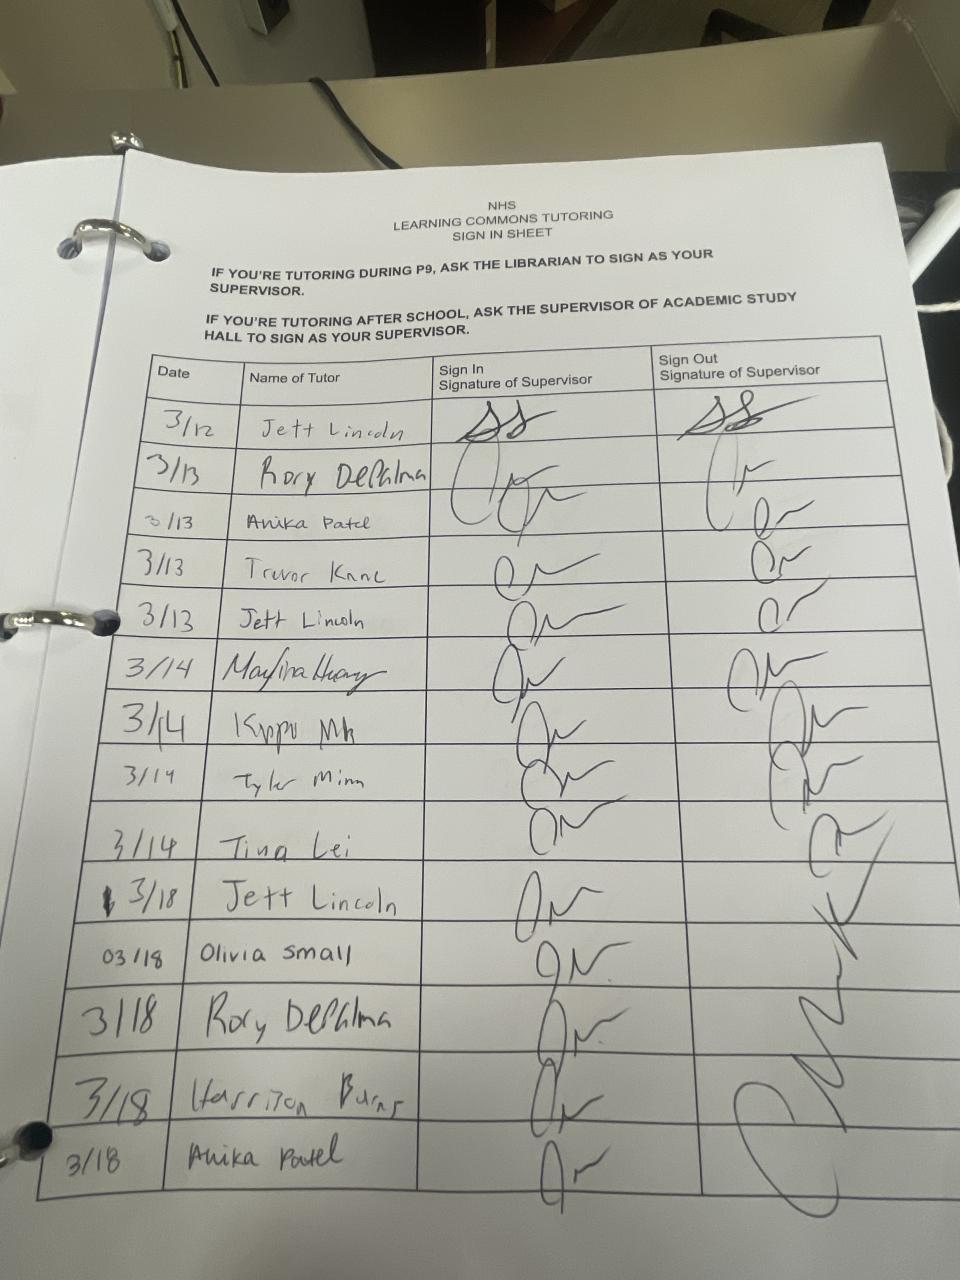 NHS
LEARNING COMMONS TUTORING
SIGN IN SHEET
IF YOU'RE TUTORING DURING P9, ASK THE LIBRARIAN TO SIGN AS YOUR
SUPERVISOR.
IF YOU'RE TUTORING AFTER SCHOOL, ASK THE SUPERVISOR OF ACADEMIC STUDY
HALL TO SIGN AS YOUR SUPERVISOR.
Date Name of Tutor Sign In Sign Out
Signature of Supervisor Signature of Supervisor
3/12 Jett Lincoln SS SS
3/13 Rory DePalma
3/13 Anika Patel
3/13 Trevor
3/13 Jett Lincoln
3/14
3/14
3/14 Tyler Minn
3/14 Tina Lei
3/18 Jett Lincoln
03/18 Olivia Small
3/18 Rory DePalma
3/18 Harrison Burns
3/18 Anika Patel